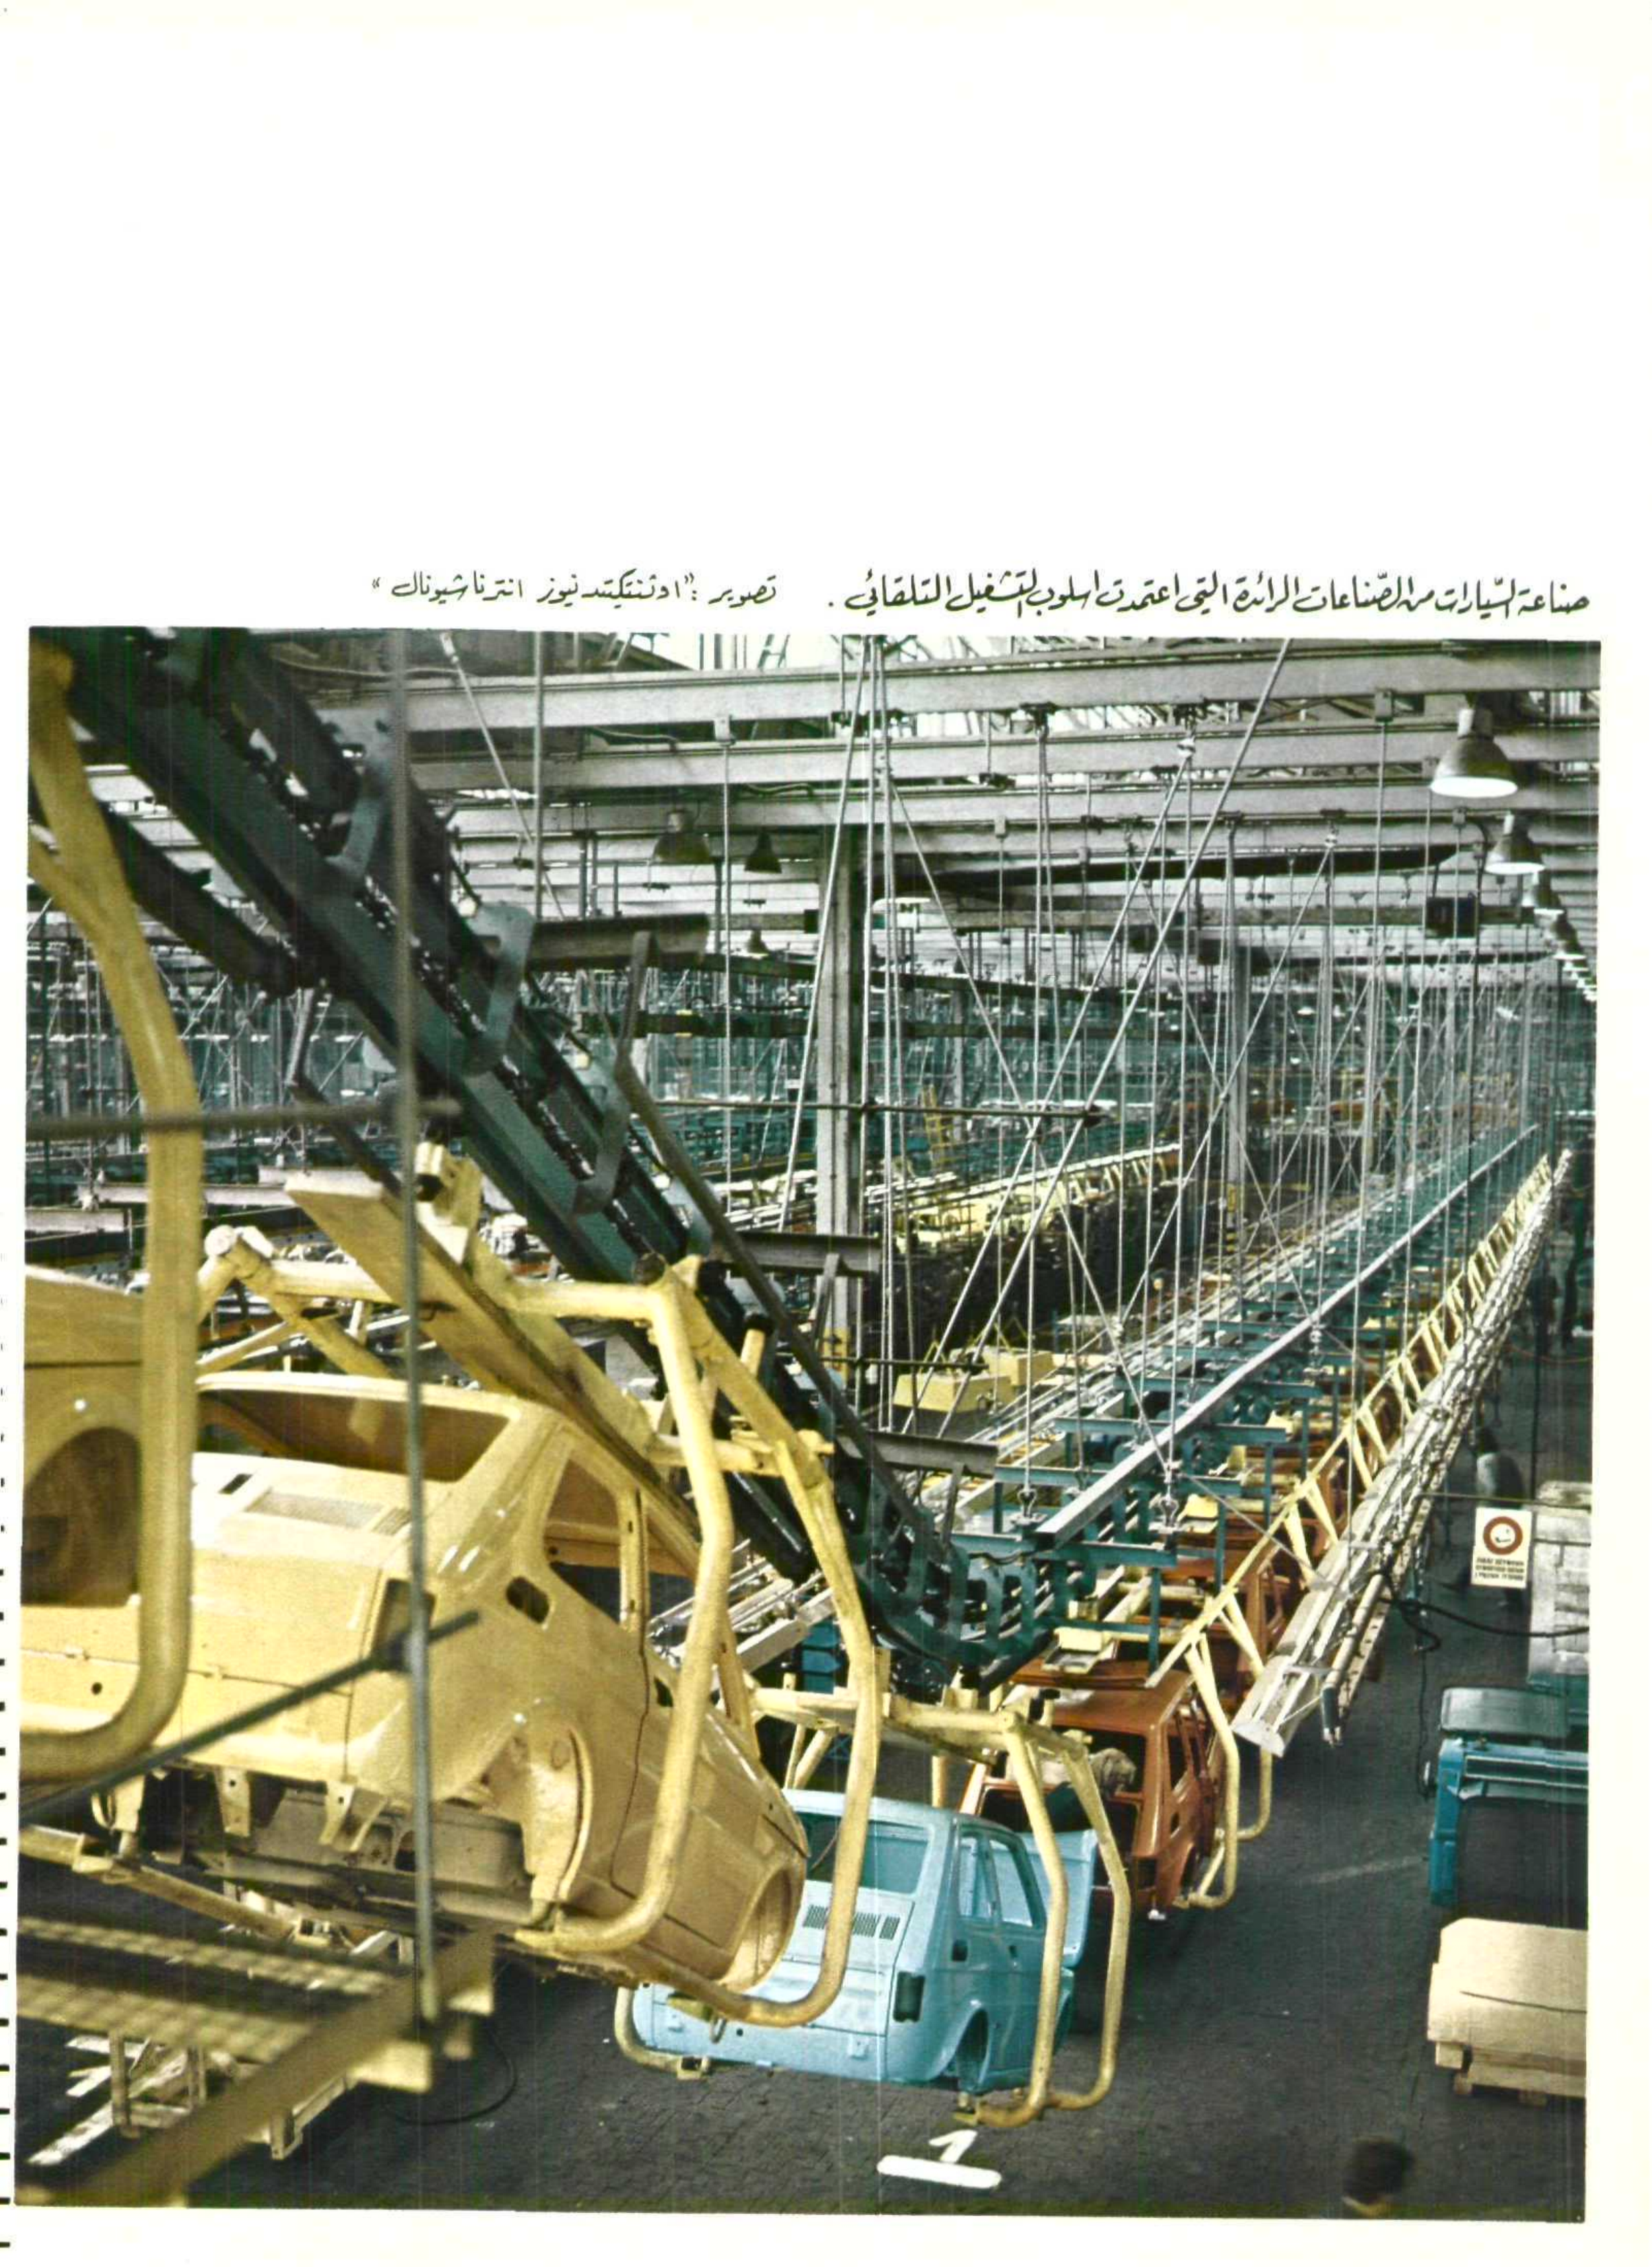 صناعة السّيارات من الصّناعات الرائدة التي اعتمدت اسلوب التشغيل التلقائي . تصوير : "اوثنتكيتد نيوز انترناشيونال"
1